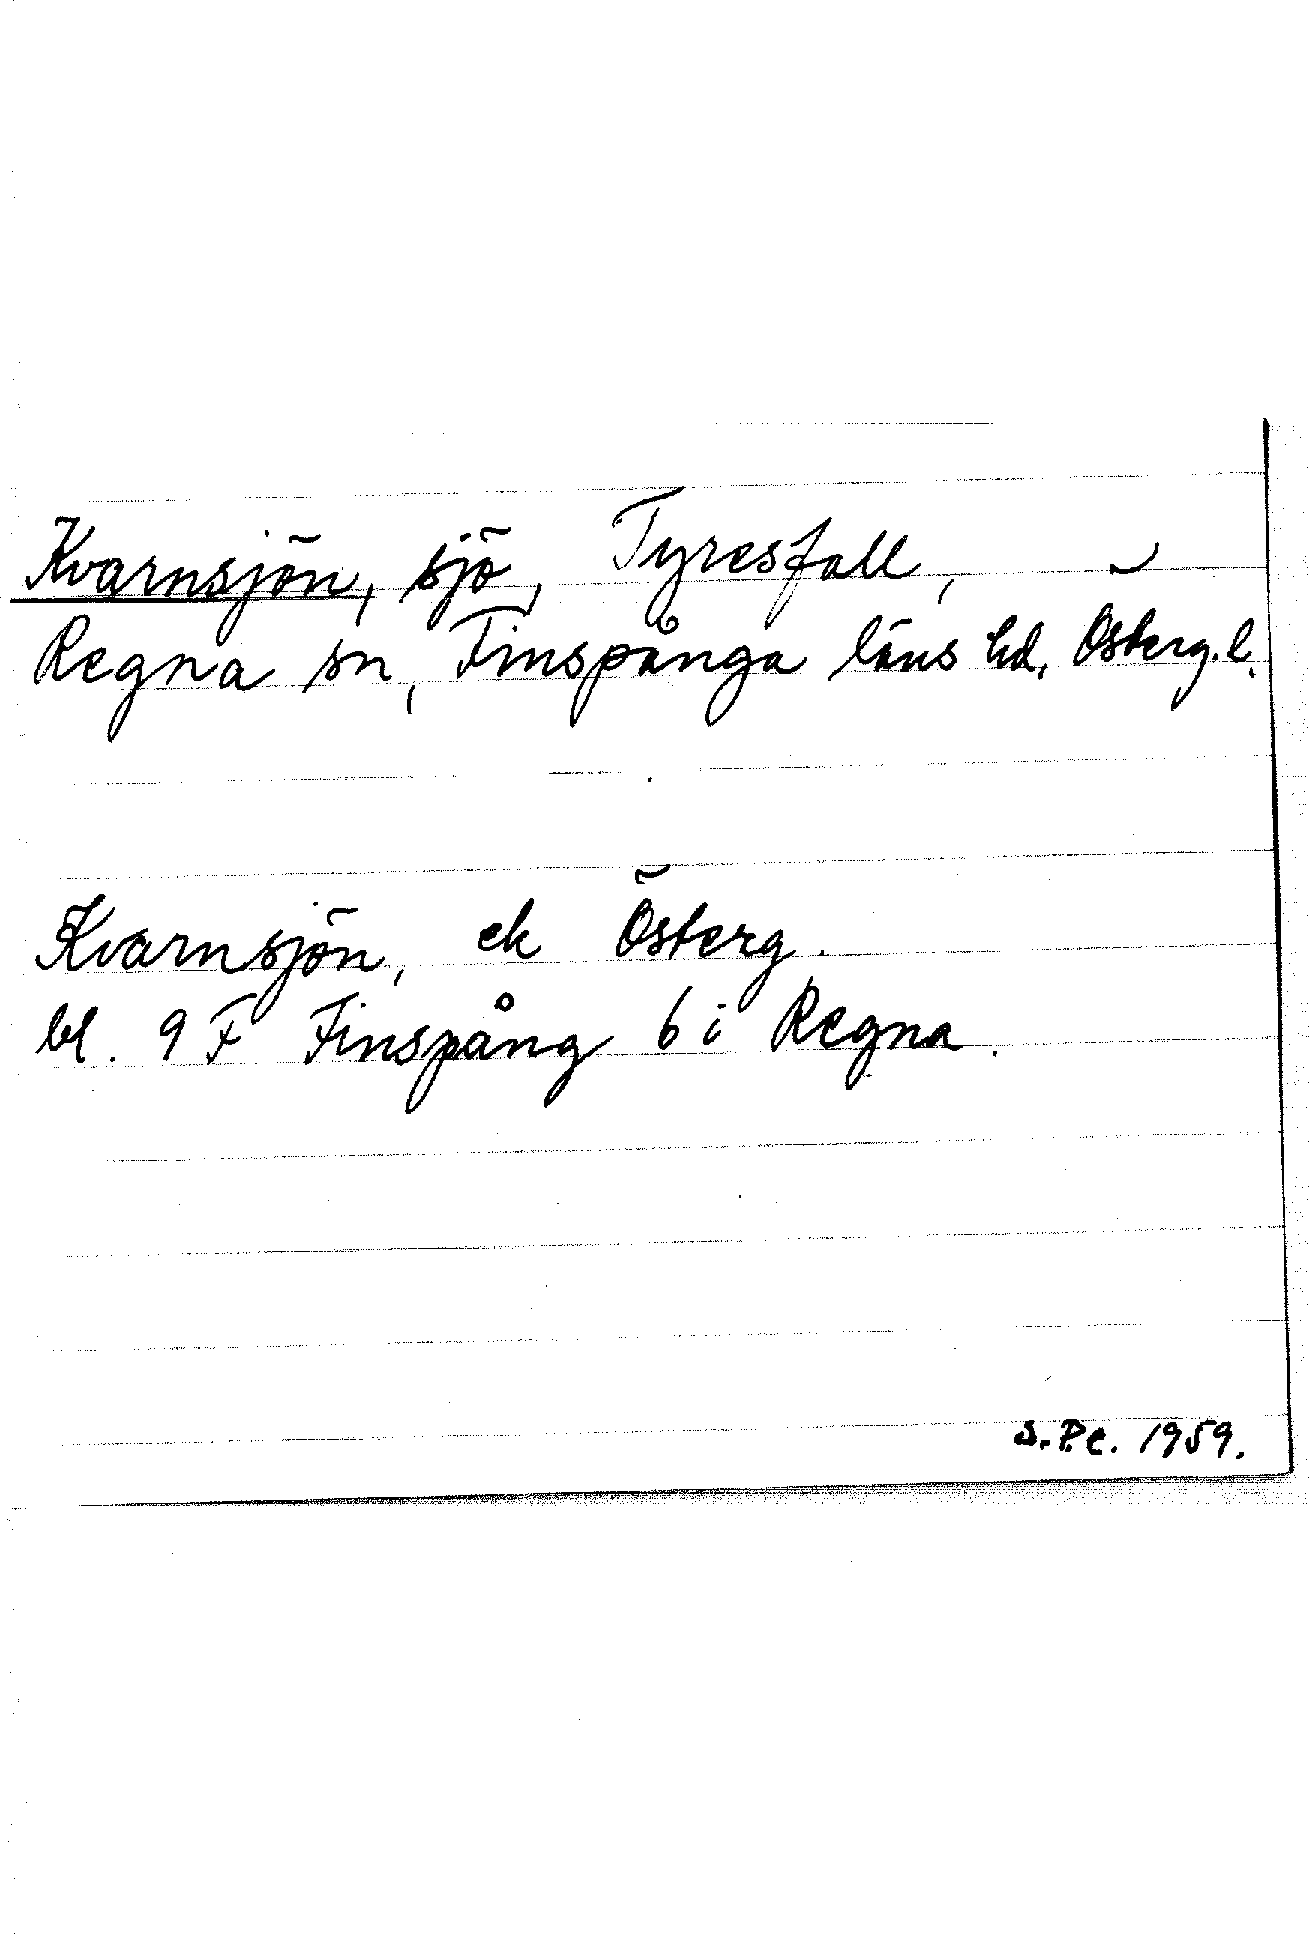 Kvarnsjön, sjö, Tyresfall,
Regna sn, Finspånga läns hd, Österg. l.
Kvarnsjön, ek Österg.
bl. 9 F Finspång 6 i Regna.
S.Pe. 1959.